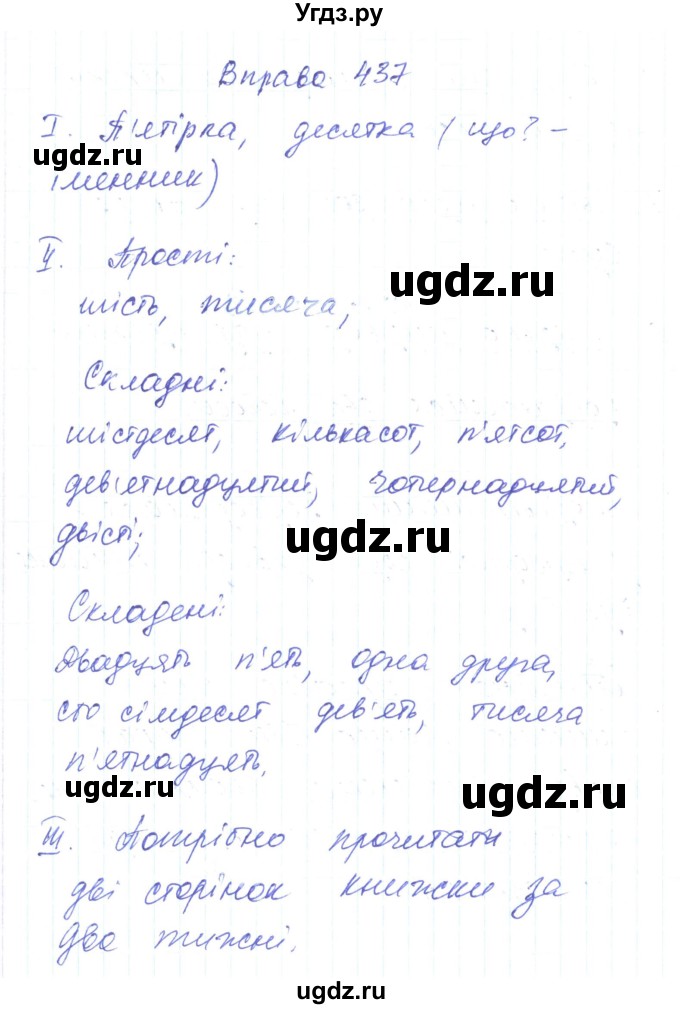 Угдз.ру
Вправа 437
I. П'ятірка, десятка ( що? –
ugdz.ru
іменник)
II. Прості:
ugdz.ru
шість, тисяча;
Складні:
шістдесят, кількасот, п'ятсот,
дев'ятнадцятий, чотирнадцятий,
ugdz.ru
двісті;
Складені:
Двадцять п'ять, одна друга,
сто сімдесят дев'ять, тисяча
п'ятнадцять.
ugdz.ru
ugdz.ru
III. Потрібно прочитати
дві сторінок книжки за
два тижні.
ugdz.ru